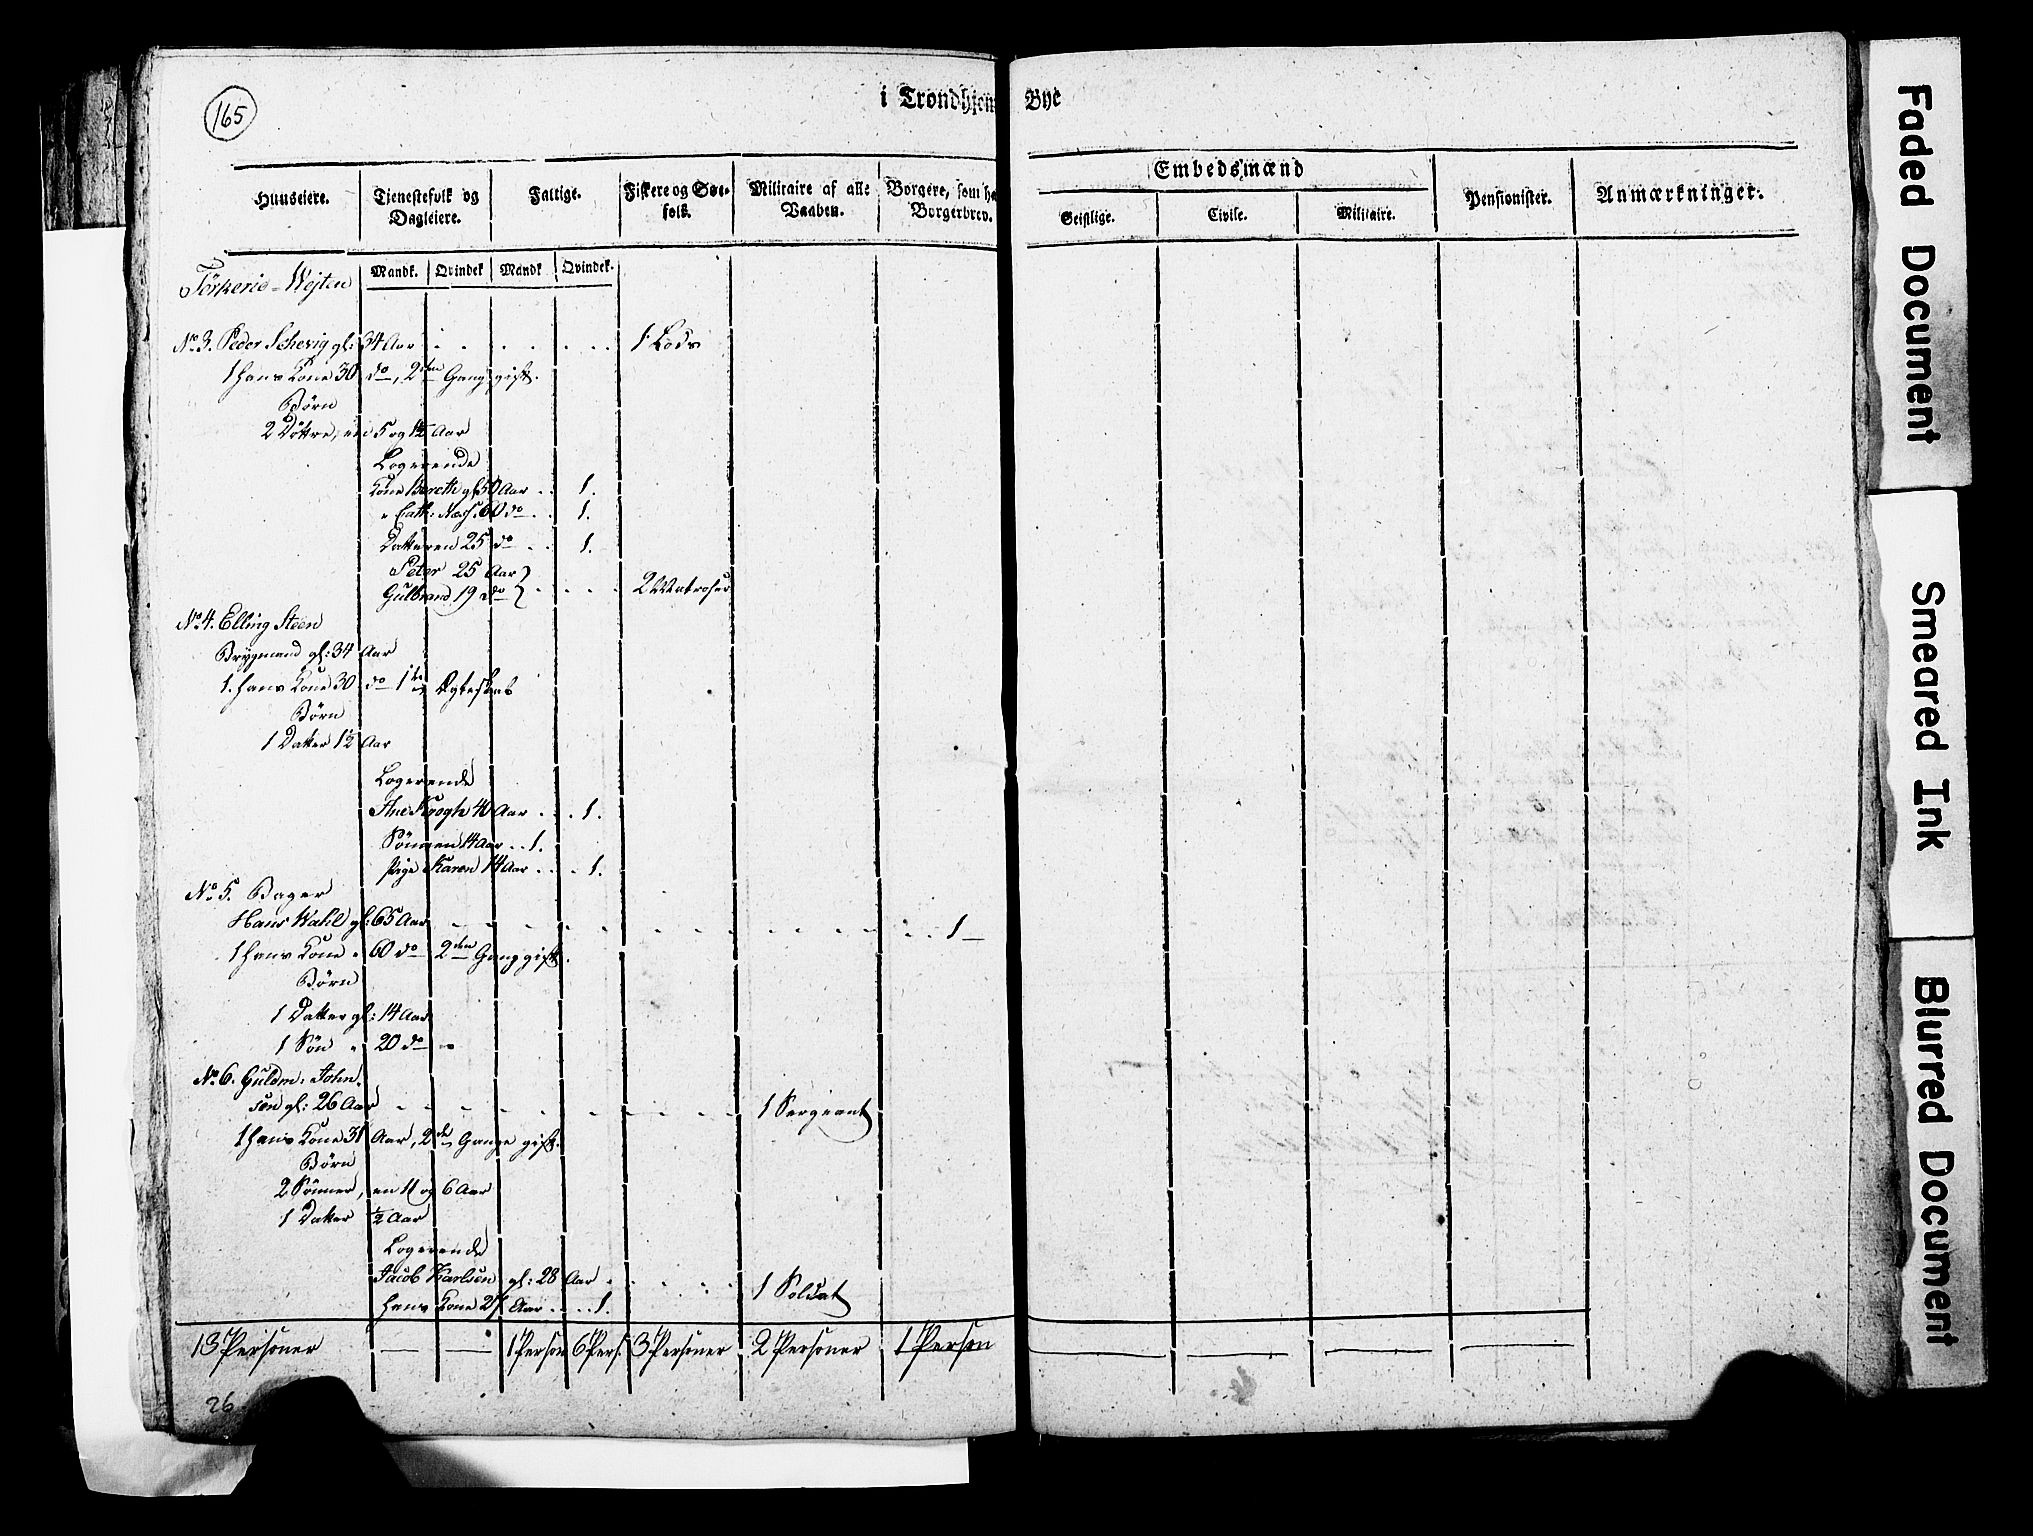 165
i Trondhjem Bye
Huuseiere.
Tjenestefolk og Dagleiere.
Fattige.
Fiskere og Søe-folk.
Militaire af alle Vaaben.
Borgere, som ha Borgerbrev.
Embedsmænd
Geistlige.
Civile.
Militaire.
Pensionister.
Anmærkninger.
Mandk. Qvindek Mandk Qvindek.
Törkerie-Wejten
No 3. Peder Schevig gl: 34 Aar . . . . . . 1 Lods
1 hans Kone 30 do, 2den Gang gift.
Börn
2 Döttre, en 5 og 1½ Aar
Logerende
Kone Bereth gl 50 Aar . . 1.
" Cath: Næss: 60 do . . 1.
Datteren 25 do . . 1.
Peter 25 Aar
Gulbrand 19 do . . . . 2 Matroser
No 4. Elling Steen
Brygmand gl: 34 Aar
1. hans Kone 30 do 1te Egteskab
Börn
1 Datter 1½ Aar
Logerende
Ane Krogh 40 Aar . . . 1.
Sönnen 14 Aar . . 1.
Pige Karen 14 Aar . . . 1.
No 5. Bager
Hans Wahl gl: 65 Aar . . . . . . . . 1 —
1 hans Kone " 60 do 2den Gang gift.
Börn
1 Datter gl: 14 Aar
1 Sön " 20 do "
No 6. Guldm: John-
sen gl: 26 Aar . . . . . . 1 Sergeant
1 hans Kone 31 Aar, 2de Gange gift.
Börn
2 Sönner, en 11 og 6 Aar
1 Datter ½ Aar
Logerende
Jacob Karlsen gl: 28 Aar . . . . 1 Soldat
hans Kone 27 Aar . . . . 1.
13 Personer — — 1 Person 6 Pers. 3 Personer 2 Personer 1 Person
26
Faded Document
Smeared Ink
Blurred Document